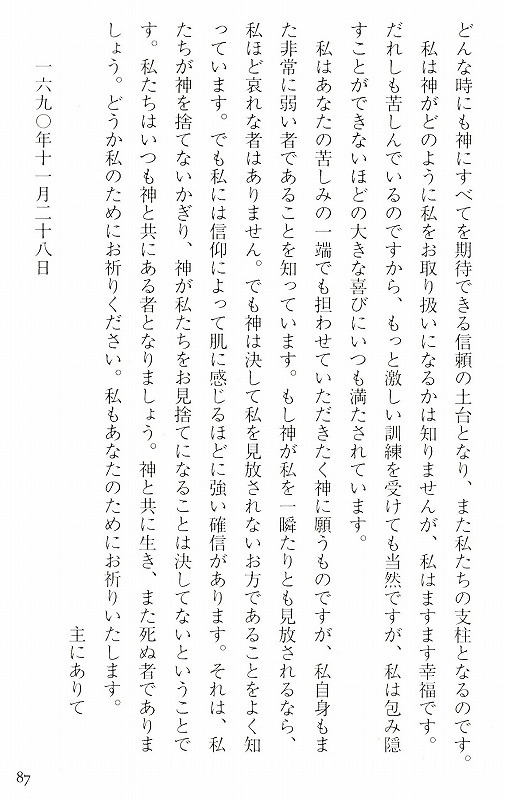 どんな時にも神にすべてを期待できる信頼の土台となり、また私たちの支柱となるのです。
私は神がどのように私をお取り扱いになるかは知りませんが、私はますます幸福です。
だれしも苦しんでいるのですから、もっと激しい訓練を受けても当然ですが、私は包み隠
すことができないほどの大きな喜びにいつも満たされています。
私はあなたの苦しみの一端でも担わせていただきたく神に願うものですが、私自身もま
た非常に弱い者であることを知っています。もし神が私を一瞬たりとも見放されるなら、
私ほど哀れな者はありません。でも神は決して私を見放されないお方であることをよく知
っています。でも私には信仰によって肌に感じるほどに強い確信があります。それは、私
たちが神を捨てないかぎり、神が私たちをお見捨てになることは決してないということで
す。私たちはいつも神と共にある者となりましょう。神と共に生き、また死ぬ者でありま
しょう。どうか私のためにお祈りください。私もあなたのためにお祈りいたします。
主にありて
一六九〇年十一月二十八日
87